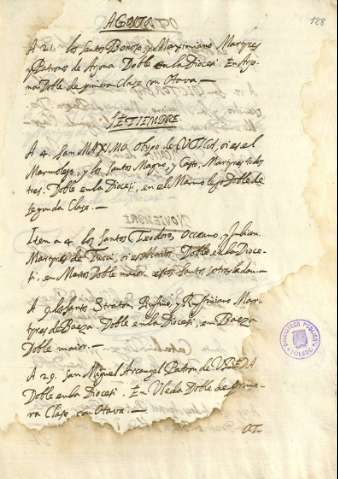 128
AGOSTO
A 21. los Santos Bonoso y Maximiano Martyres
y Patronos de Arjona Doble en la Diocesi. En Arjo
na Doble de primera Clase con Otava.
SETIEMBRE
A 4. San MAXIMO Obispo de
Marmolejo, y los Santos Magno, y Casto, Martyres todos
tres. Doble en la Diocesi, en el Marmolejo Doble de
segunda Clase.
Iten a 4. los Santos Teodoro, Occeano, y Julian
Martyres de Doble en la Dioce-
si. en Martos Doble maior.
A 9. los Santos Straton, Rufino, y Rufiniano Mar-
tyres de Baeza. Doble en la Diocesi, en Baeza
Doble maior.
A 29. San Miguel Arcangel Patron de VBEDA
Doble en la Diocesi. En Vbeda Doble de prime
ra Clase con Otava.